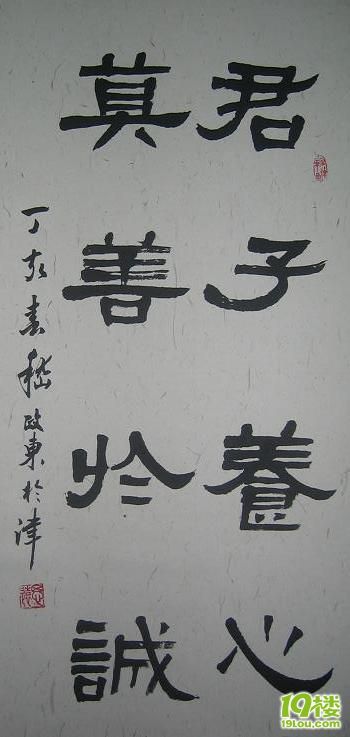 君子養心
莫善於誠
丁亥春嵇政東於津
19楼
19lou.com